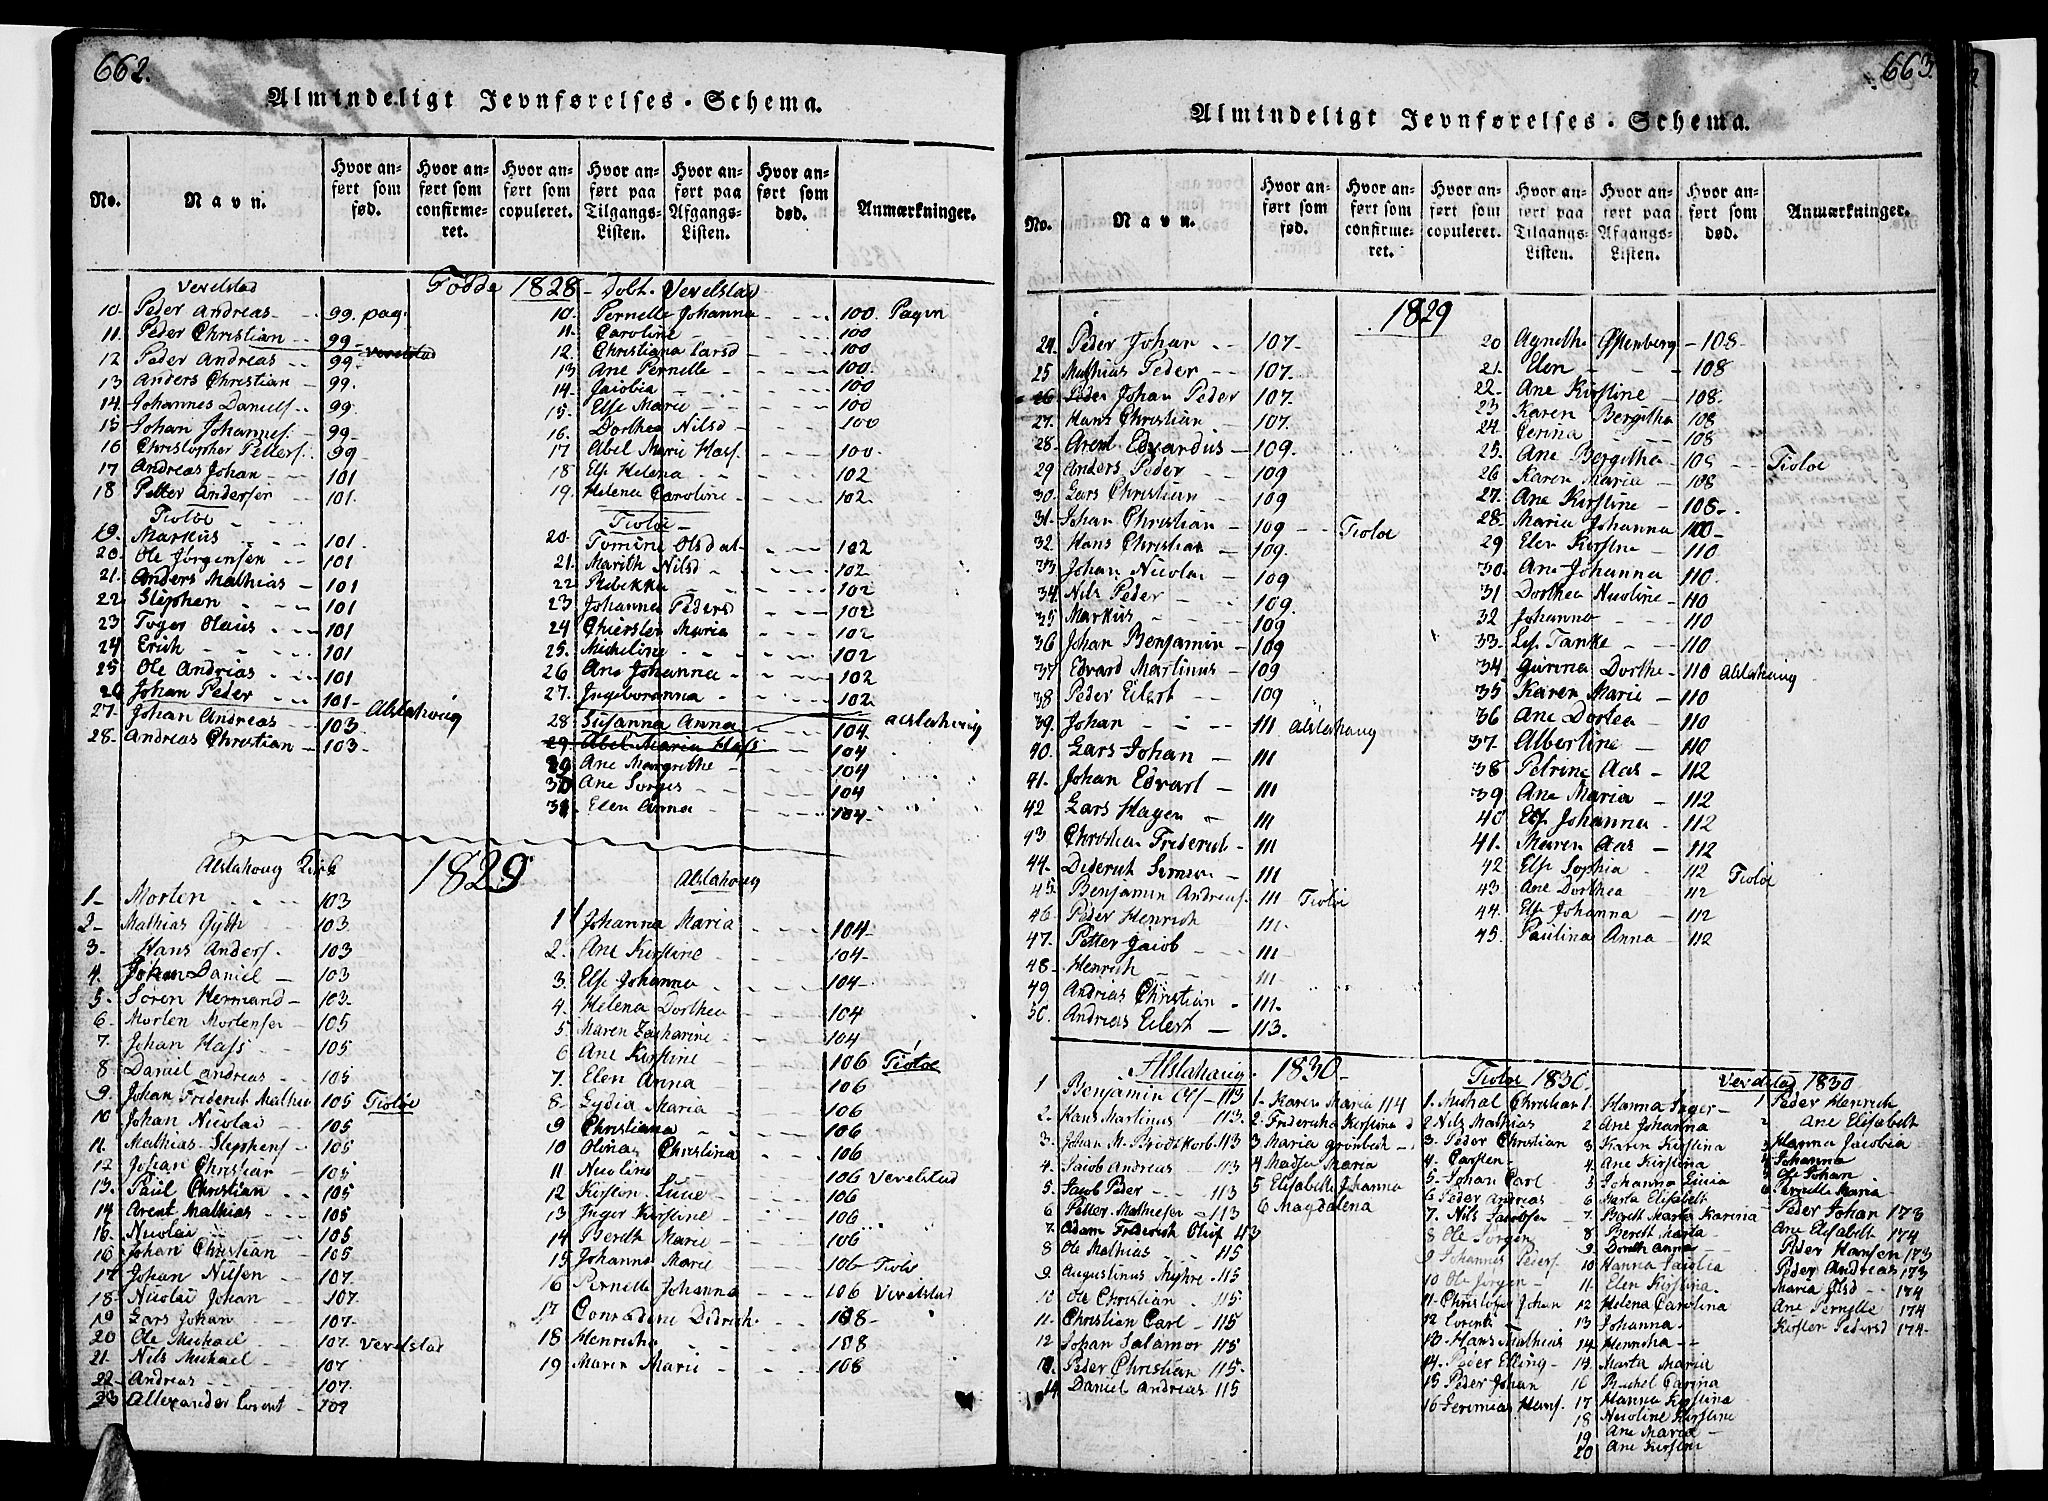 662.
Almindeligt Jevnførelses-Schema.
No.
Navn.
Hvor anført som fød.
Hvor anført som confirmeret.
Hvor anført som copuleret.
Hvor anført paa Tilgangs-Listen.
Hvor anført paa Afgangs-Listen.
Hvor anført som død.
Anmærkninger.
Fødde 1828
Vevelstad
10. Peder Andreas 99. pag.
11. Peder Christian 99
12 Peder Andreas 99 Vevelstad
13 Anders Christian 99.
14. Johannes Daniels. 99
15. Johan Johannes. 99
16 Christopher Petters. 99
17 Andreas Johan 101
18 Petter Andersen 101.
Tiotøe
19. Markus 101
20. Ole Jørgensen 101
21. Anders Mathias 101
22 Stephen 101
23 Toger Olaus 101
24 Erich 101
25 Ole Andrias 101
26 Johan Peder 101
27. Johan Andreas 103 Alstahoug
28. Andreas Christian 103.
Dobt. Vevelstad
10. Pernelle Johanna 100. Pagin
11. Caroline 100
12. Christiana Larsd 100
13 Ane Pernelle 100.
14. Jacobia 100
15. Else Marie 100
16. Dorthea Nilsd 100
17 Abel Marie Hass. 100.
18 Els Helena 102
19. Helena Caroline 102.
Tiotøe
20. Tomine Olsdat 102
21. Marith Nilsd 102
22 Rebekka 102
23 Johanna Peders 102
24 Chiersten Maria 102
25. Micheline 102
26 Ane Johanna 102
27. Ingeboranna 102
28. Susanna Anna 104. Alstahoug
29 Abel Maria Hass 104
Ane Margrethe 104
30 Ane Sorges 104
31 Elen Anna 104.
1829
Alstahoug Kirke
1 Morten 103
2 Mathias Gyth 103
3. Hans Anders. 103
4. Johan Daniel 103
5. Soren Hermand 103.
6. Morten Mortensen 105
7. Johan Hass 105
8 Daniel Andreas 105
9. Johan Frederik Mathis 105 Tiotøe
10 Johan Nicolai 105
11. Mathias Stephens 105
12 Johan Christian 105
13. Paul Christian 105
14 Arent Mathias 105
15. Nicolai 105
16 Johan Christian 105
17 Johan Nilsen 107.
18. Nicolai Johan 107.
19 Lars Johan 107.
20 Ole Michael 107. Vevelstad
21. Nils Michael 107
22 Andreas 107.
23 Allexander Lorent 107
Alstahoug
1 Johanna Maria 104
2. Ane Kirstine 104
3. Else Johanna 104
4. Helena Dorthea 104
5 Maren Zacharine 104
6 Ane Kirstine 106 Tiotøe
7. Elen Anna 106
8. Lydia Maria 106
9 Christiana 106
10 Olina Christina 106
11 Nicoline 106 Vevelstad
12 Kirsten Lucie 106
13 Inger Kirstine 106
14 Bereth Marie 106
15 Johanna Marie 106 Tiotøe
16 Pernelle Johanna 106 Vevelstad
17 Conradine Didrich 108
18 Henricha 108
19 Maren Marie 108
663.
Almindeligt Jevnførelses-Schema.
No.
Navn.
Hvor anført som fød.
Hvor anført som confirmeret.
Hvor anført som copuleret.
Hvor anført paa Tilgangs-Listen.
Hvor anført paa Afgangs-Listen.
Hvor anført som død.
Anmærkninger.
1829
24. Peder Johan 107.
25 Mathias Peder 107.
26 Peder Johan Peder 107.
27. Hans Christian 107.
28. Arent Edvardus 109.
29 Anders Peder 109
30. Lars Christian 109
31. Johan Christian 109 Tiotøe
32. Hans Christian 109.
33 Johan Nicolai 109
34. Nils Peder 109.
35 Markus 109
36 Johan Benjamin 109
37 Edvard Martinus 109
38 Peder Eilert 109
39. Johan 111 Alstahoug
40. Lars Johan 111
41. Johan Edvart 111
42 Lars Hagen 111
43 Christian Friderich 111
44. Diderich Simon 111
45. Benjamin Andreas. 111 Tiotøe
46 Peder Henrich 111.
47. Petter Jacob 111
48. Henrich 111.
49 Andrias Christian 111.
50. Andreas Eilert 113.
20 Agnethe Ystenberg 108
21. Elen 108
22. Ane Kirstine 108.
23 Karen Bergitha 108
24. Cerina 108
25. Ane Bergitha 108 Tiotøe
26 Karen Maria 108
27. Ane Kirstine 108
28. Maria Johanna 100
29 Elen Kirstine 110
30. Ane Johanna 110.
31 Dorthea Nicoline 110
32 Johanna 110
33. Els. Tanke 110
34 Gurina Dorthe 110 Alstahoug
35 Karen Marie 110
36 Ane Dortea 110
37. Albertine 110
38 Petrine Aas 112
39 Ane Maria 112
40 Else Johanna 112
41. Maren Aas 112
42 Else Sophia 112 Tiotøe
43. Ane Dorthea 112
44. Else Johanna 112
45. Paulina Anna 112
Alstahoug 1830
1 Benjamin 113
2. Hans Martinus 113.
3. Johan M. Brodtkorb. 113
4. Jacob Andreas 113
5. Jacob Peder 113
6 Petter Mathiesen 113
7. Adam Frederich Oluf 113
8 Ole Mathias 115
9. Augustinus 115
10. Ole Christian 115
11. Christian Carl 115
12 Johan Salamon 115
13. Peder Christian 115.
14 Daniel Andreas 115
1. Karen Maria 114
2. Fredericka Kirstina
3 Maria Grønbech
4 Madse Maria
5 Elisabeth Johanna
6 Magdalena
Tiotøe 1830.
1. Michal Christian
2 Nils Mathias
3. Peder Christian
4. Carsten
5. Johan Carl
6 Peder Andreas
7. Nils Jacobsen
8 Ole Jorgen
9 Johannes Peders.
10 Ole Jørgen
11. Christofer Johan
12 Lorents
13. Hans Mathias
14. Peder Elling
15 Peder Johan
16 Jeremias Hans.
1. Hanna Inger
2 Ane Johanna
3 Karen Kirstina
4. Ane Kirstina
5 Johanna Lucia
6 Marta Elisabeth
7. Bereth Marta Karina
8 Bereth Marta
9. Dorth Anna
10 Hanna Jacobia
11. Elen Kirstina
12 Helena Carolina
13 Johanna
14 Henricha
15. Marta Maria
16 Rachel Carina
17 Hanna Kirstina
18 Nicoline Kirstine
19 Ane Maria
20 Ane Kirstine
Vevelstad 1830
1 Peder Henrich
2 Ane Elisabeth
3 Hanna Jacobia
4 Johanna
5 Ole Johan
6 Pernille Maria
Peder Johan 173
Ane Elisabeth 174
Peder Hansen 173
Peder Andreas 173
Maria Olsd 174
Ane Pernelle 174
Kirsten Pedersd 174.